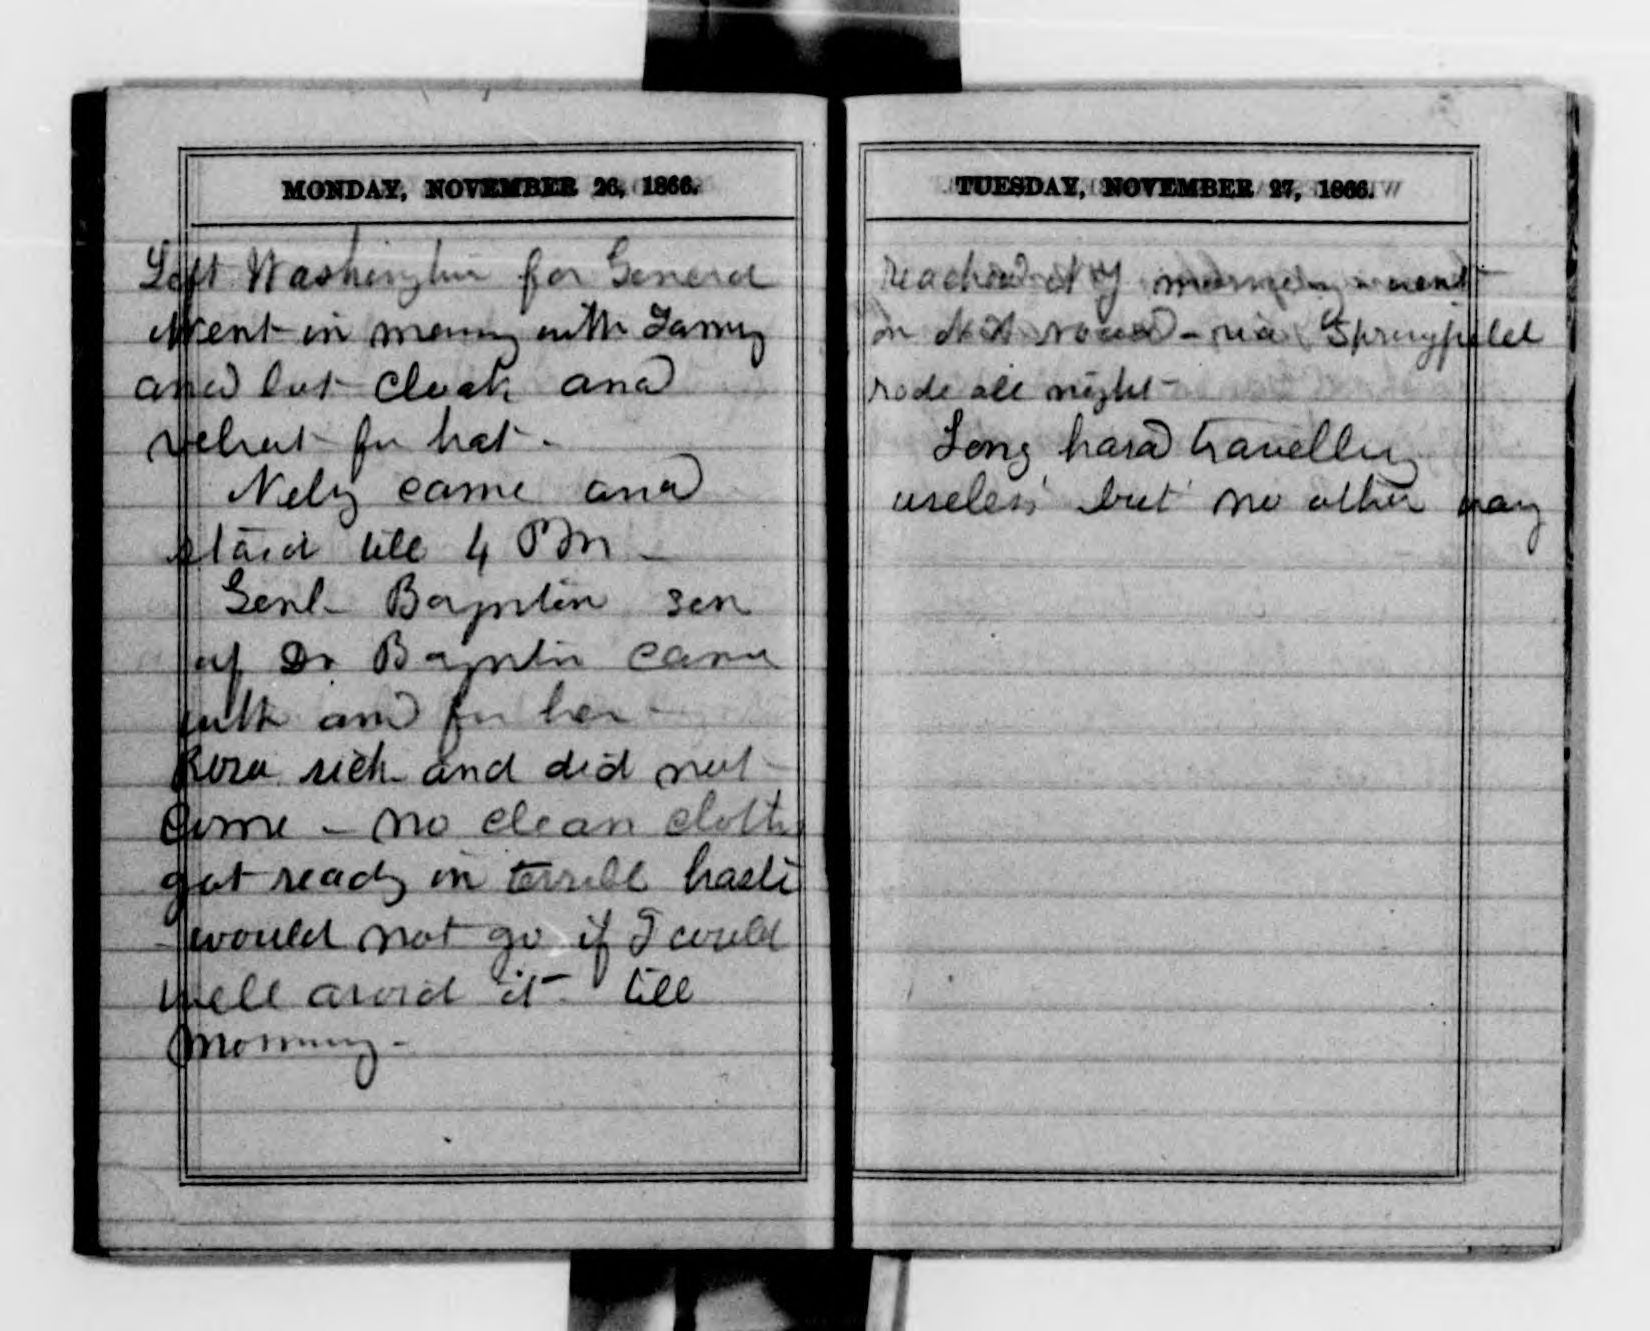 MONDAY, NOVEMBER 26, 1866.
Left Washington for General
Went in morning with Fanny
and cloak and
velvet for hat -
Nelly came and
staid till 4 PM -
Genl - Boynton son
of Dr Boynton came
with and for her -
Rosa sick and did not
come - no clean cloths
got ready in terrible haste
- would not go if I could
well avoid it - till
morning -
TUESDAY, NOVEMBER 27, 1866.
reached N Y morning went
on road - via Springfield
rode all night -
Long hard travelling
useless but no other way